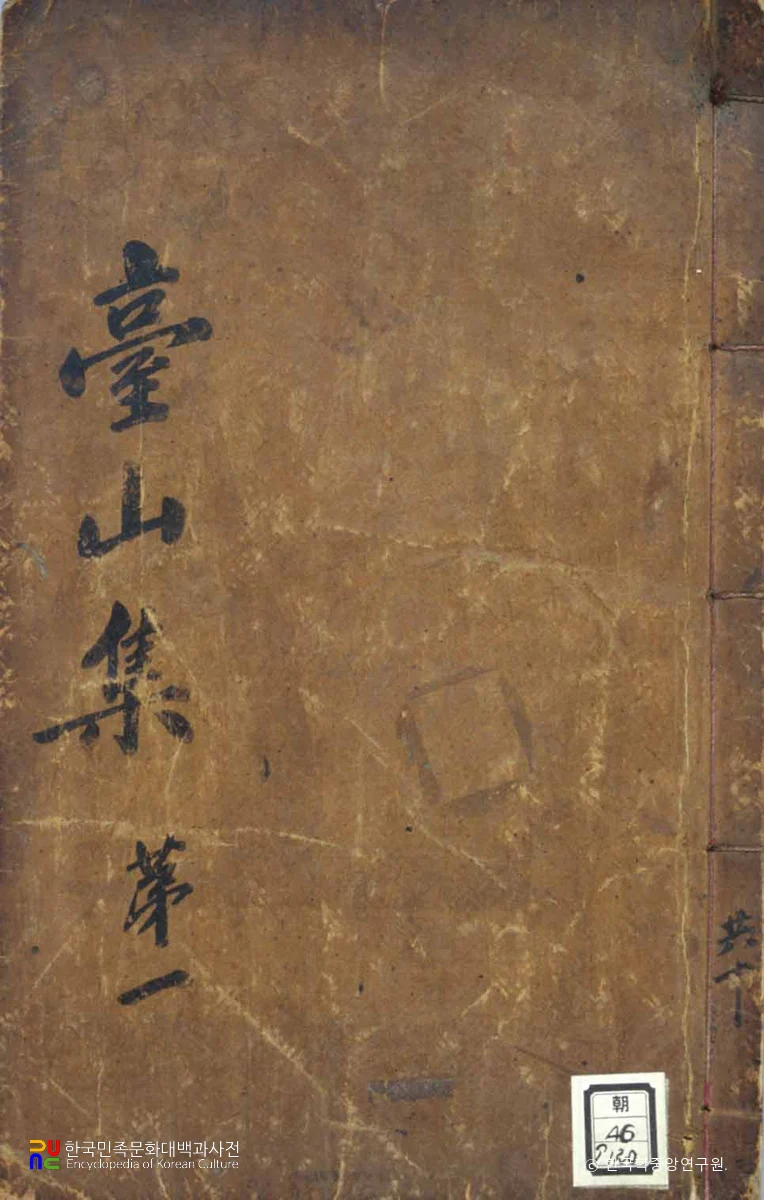 臺山集 第一
共十
朝
46
한국민족문화대백과사전
Encyclopedia of Korean Culture
© 한국학중앙연구원.